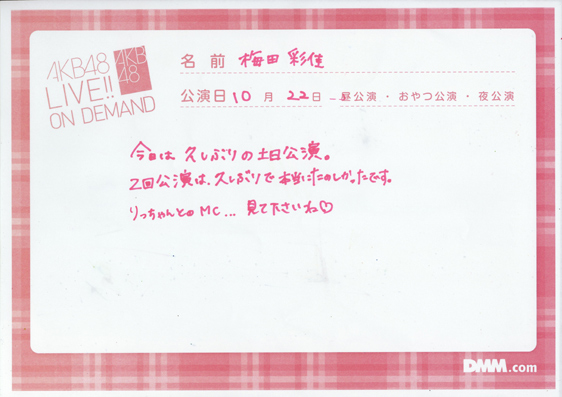 AKB48
LIVE!!
ON DEMAND
AKB
48
名前 梅田 彩佳
公演日 10月 22日 - 昼公演・おやつ公演・夜公演
今日は 久しぶりの土日公演。
2回公演は、久しぶりで本当にたのしかったです。
りっちゃんとのMC... 見て下さいね♡
DMM.com